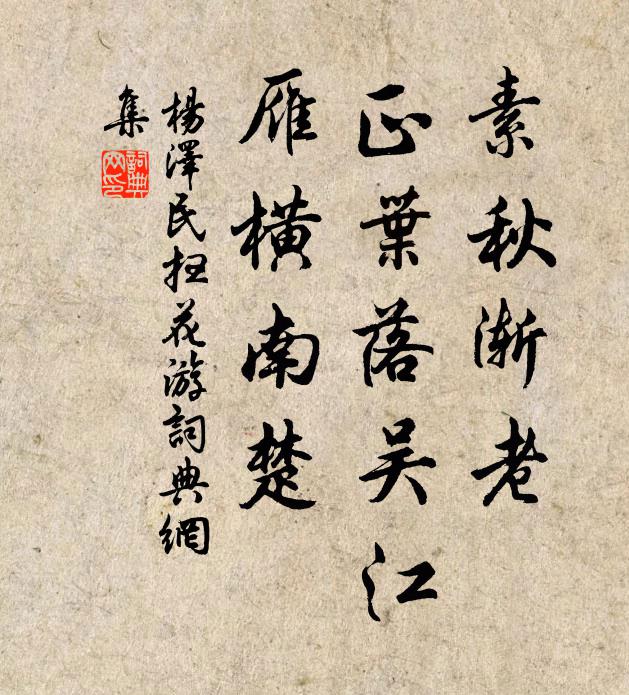 素秋渐老
正葉落吴江
雁横南楚
楊澤民扫花游詞典網
集
詞典
网印